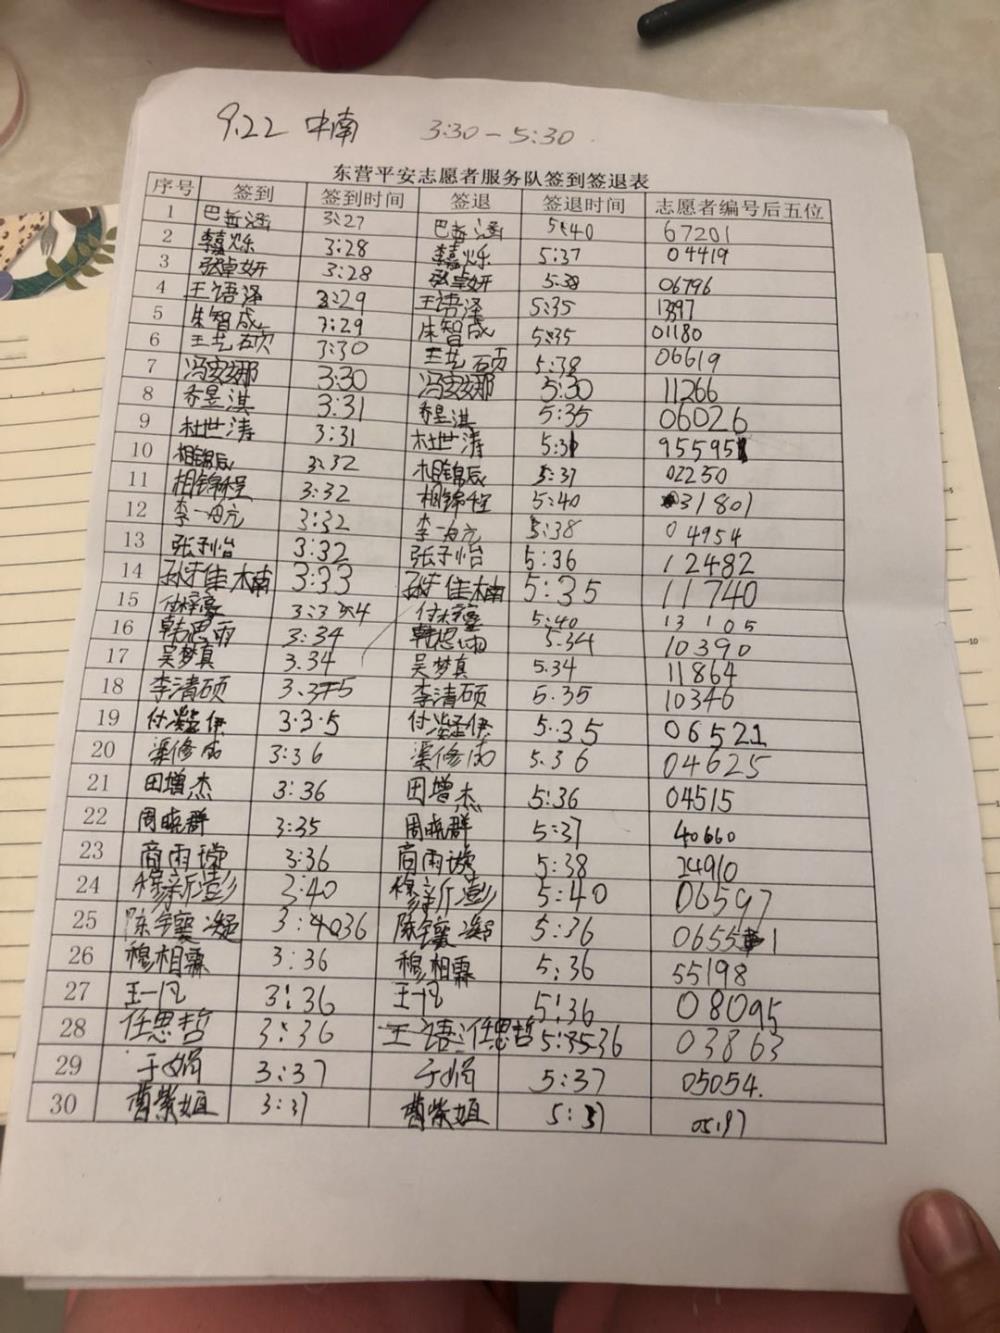 9.22 中南 3:30-5:30
东营平安志愿者服务队签到签退表
序号 签到 签到时间 签退 签退时间 志愿者编号后五位
1 巴哲涵 3:27 巴哲涵 5:40 67201
2 李嘉烁 3:28 李嘉烁 5:37 04419
3 张卓妍 3:28 张卓妍 5:38 06796
4 王语泽 3:29 王语泽 5:35 1397
5 朱智成 3:29 朱智成 5:35 01180
6 王艺硕 3:30 王艺硕 5:38 06619
7 冯安娜 3:30 冯安娜 5:30 11266
8 乔昱淇 3:31 乔昱淇 5:35 06026
9 杜世涛 3:31 杜世涛 5:31 95595
10 相锦辰 3:32 相锦辰 5:37 02250
11 相锦程 3:32 相锦程 5:40 31801
12 李一 3:32 李一 5:38 04954
13 张子怡 3:32 张子怡 5:36 12482
14 孙佳楠 3:33 孙佳楠 5:35 11740
15 付梓豪 3:34 付梓豪 5:40 13105
16 韩思雨 3:34 韩思雨 5.34 10390
17 吴梦真 3.34 吴梦真 5.34 11864
18 李清硕 3.35 李清硕 5.35 10346
19 付凝伊 3.3.5 付凝伊 5.35 06521
20 渠修 3:36 渠修 5.36 04625
21 田增杰 3:36 田增杰 5:36 04515
22 周晓群 3:35 周晓群 5:37 40660
23 商雨璇 3:36 商雨璇 5:38 24910
24 穆新澎 3:40 穆新澎 5:40 06597
25 陈凝 3:36 陈凝 5:36 06551
26 穆相霖 3:36 穆相霖 5:36 55198
27 王一凡 3:36 王一凡 5:36 08095
28 任思哲 3:36 王语 任思哲 5:3536 03863
29 于娟 3:37 于娟 5:37 05054.
30 曹紫姐 3:37 曹紫姐 5:37